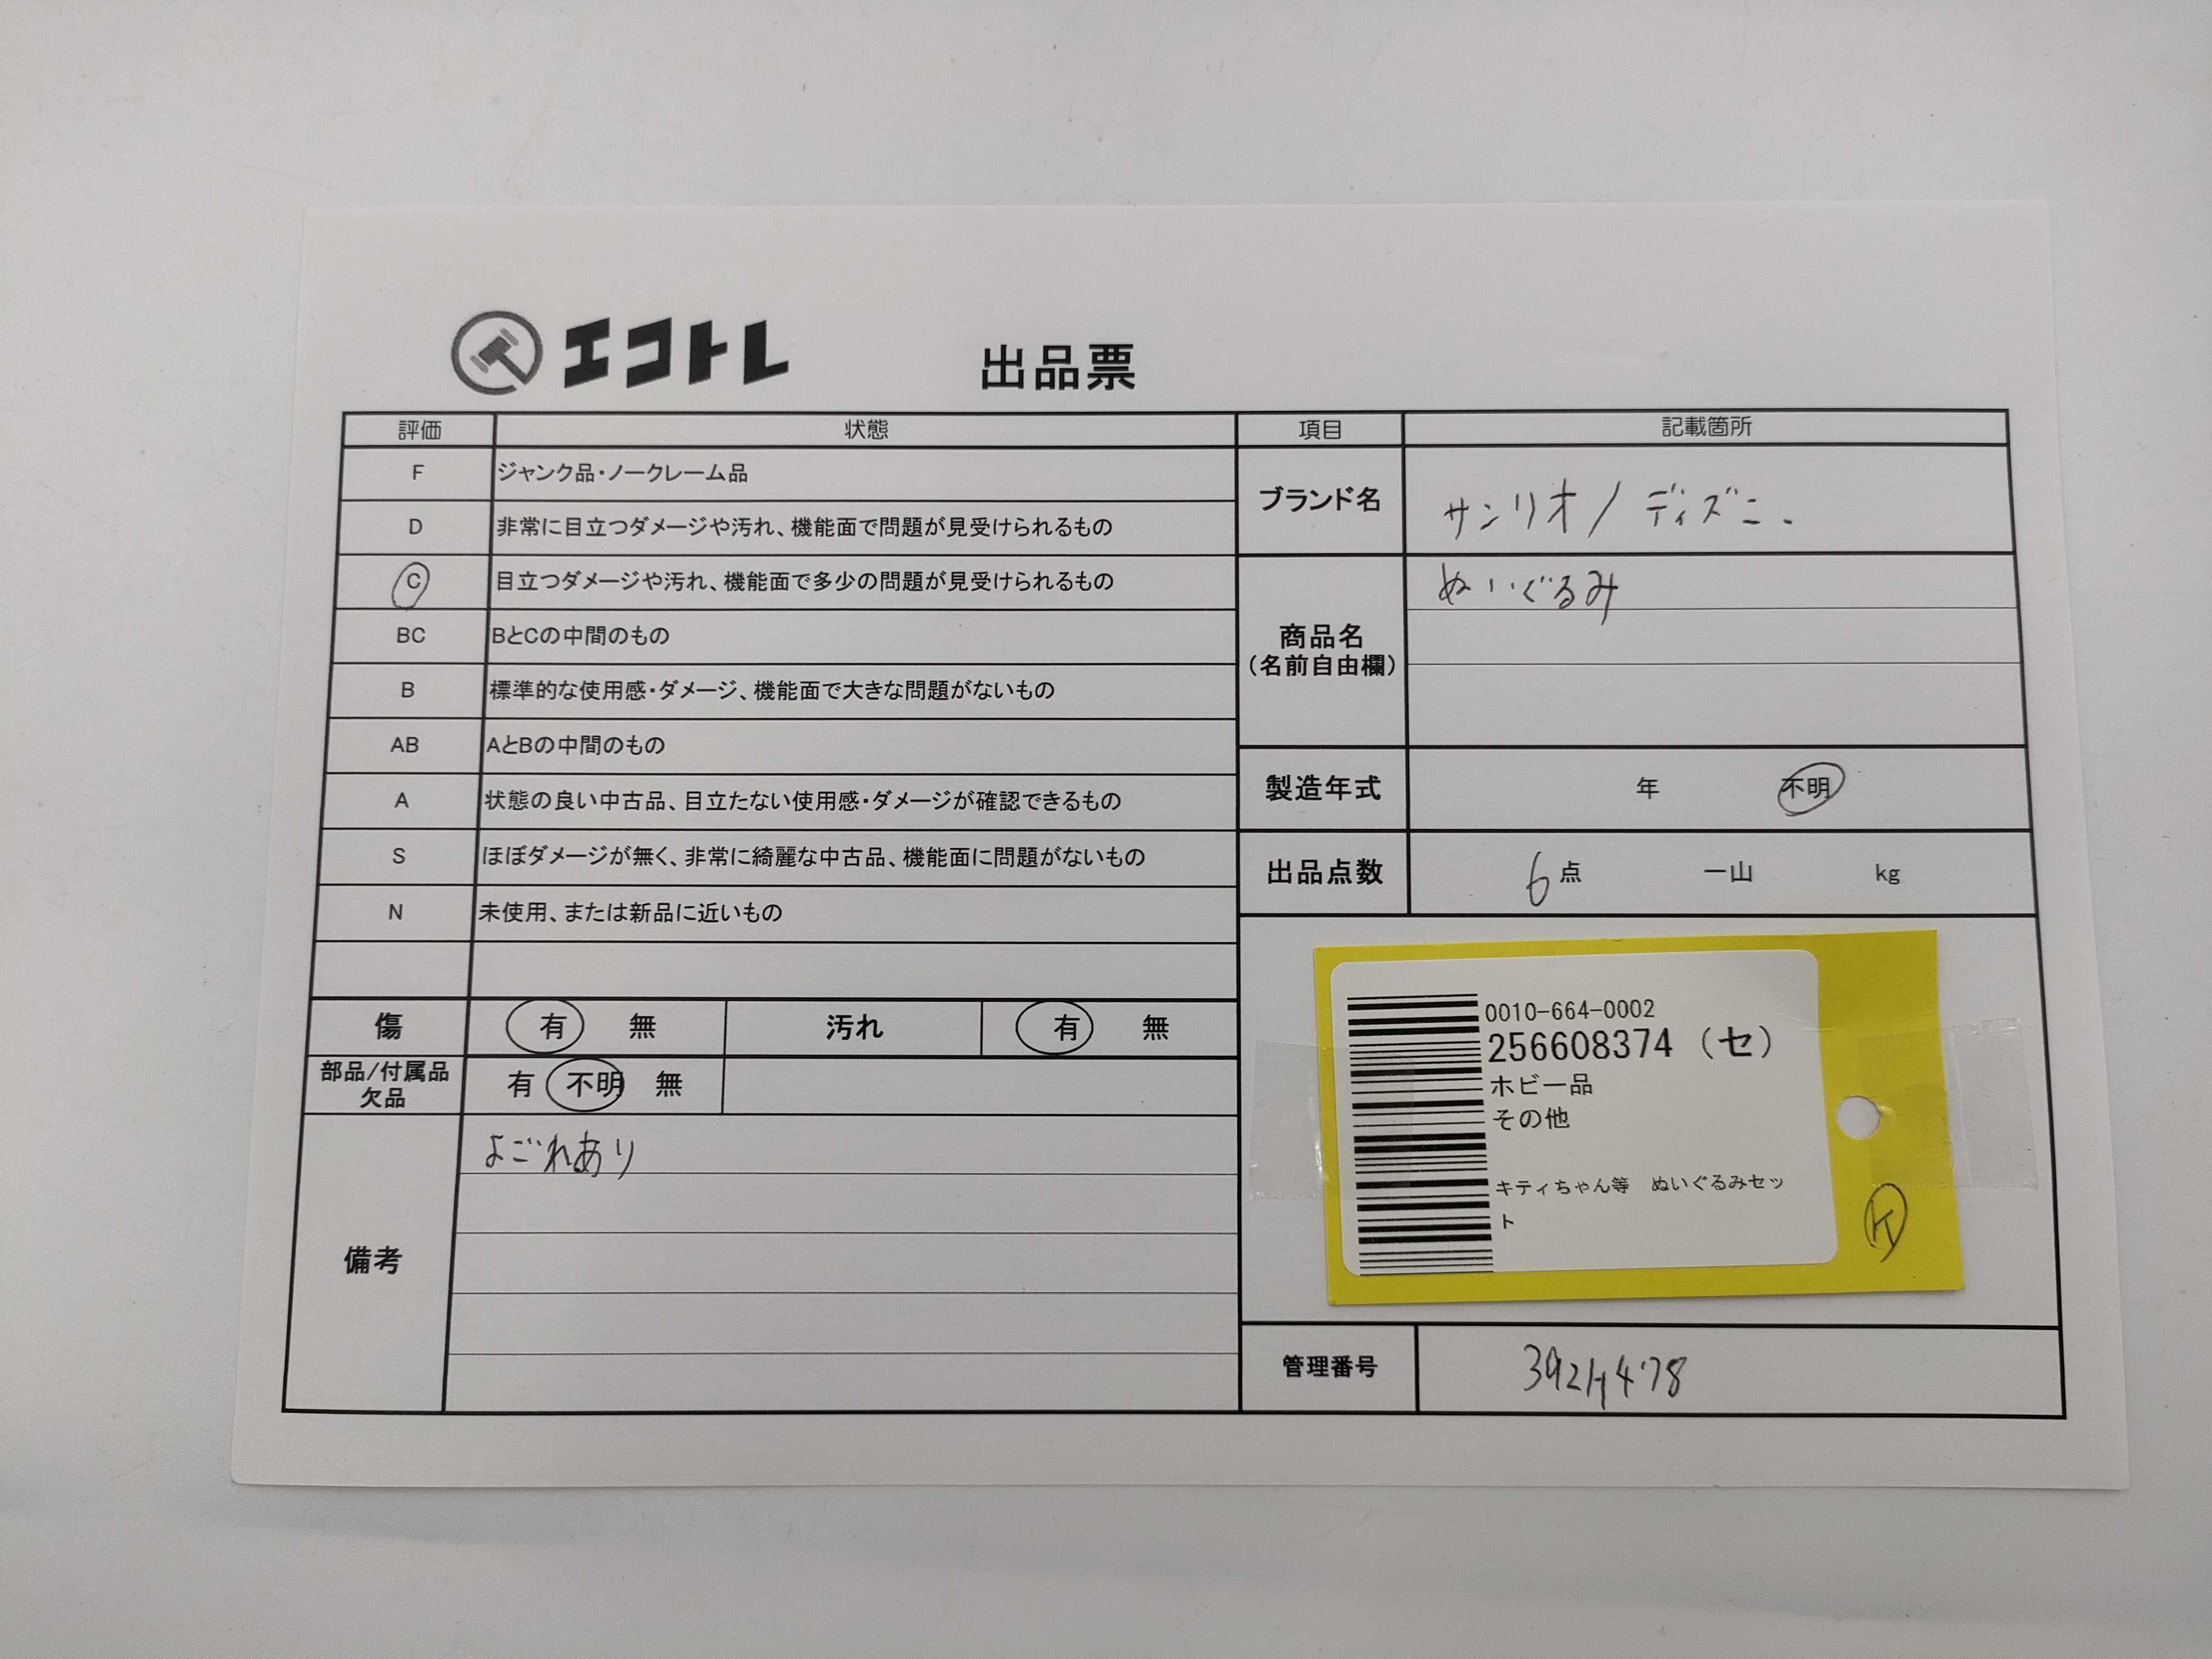 エコトレ 出品票
評価 状態 項目 記載箇所
F ジャンク品・ノークレーム品
D 非常に目立つダメージや汚れ、機能面で問題が見受けられるもの
C 目立つダメージや汚れ、機能面で多少の問題が見受けられるもの
BC BとCの中間のもの
B 標準的な使用感・ダメージ、機能面で大きな問題がないもの
AB AとBの中間のもの
A 状態の良い中古品、目立たない使用感・ダメージが確認できるもの
S ほぼダメージが無く、非常に綺麗な中古品、機能面に問題がないもの
N 未使用、または新品に近いもの
傷 有 無 汚れ 有 無
部品/付属品
欠品
有 不明 無
備考
よごれあり
ブランド名 サンリオ/ディズニー
商品名
(名前自由欄)
ぬいぐるみ
製造年式 年 不明
出品点数 6点 一山 kg
0010-664-0002
256608374 (セ)
ホビー品
その他
キティちゃん等 ぬいぐるみセッ
ト
管理番号